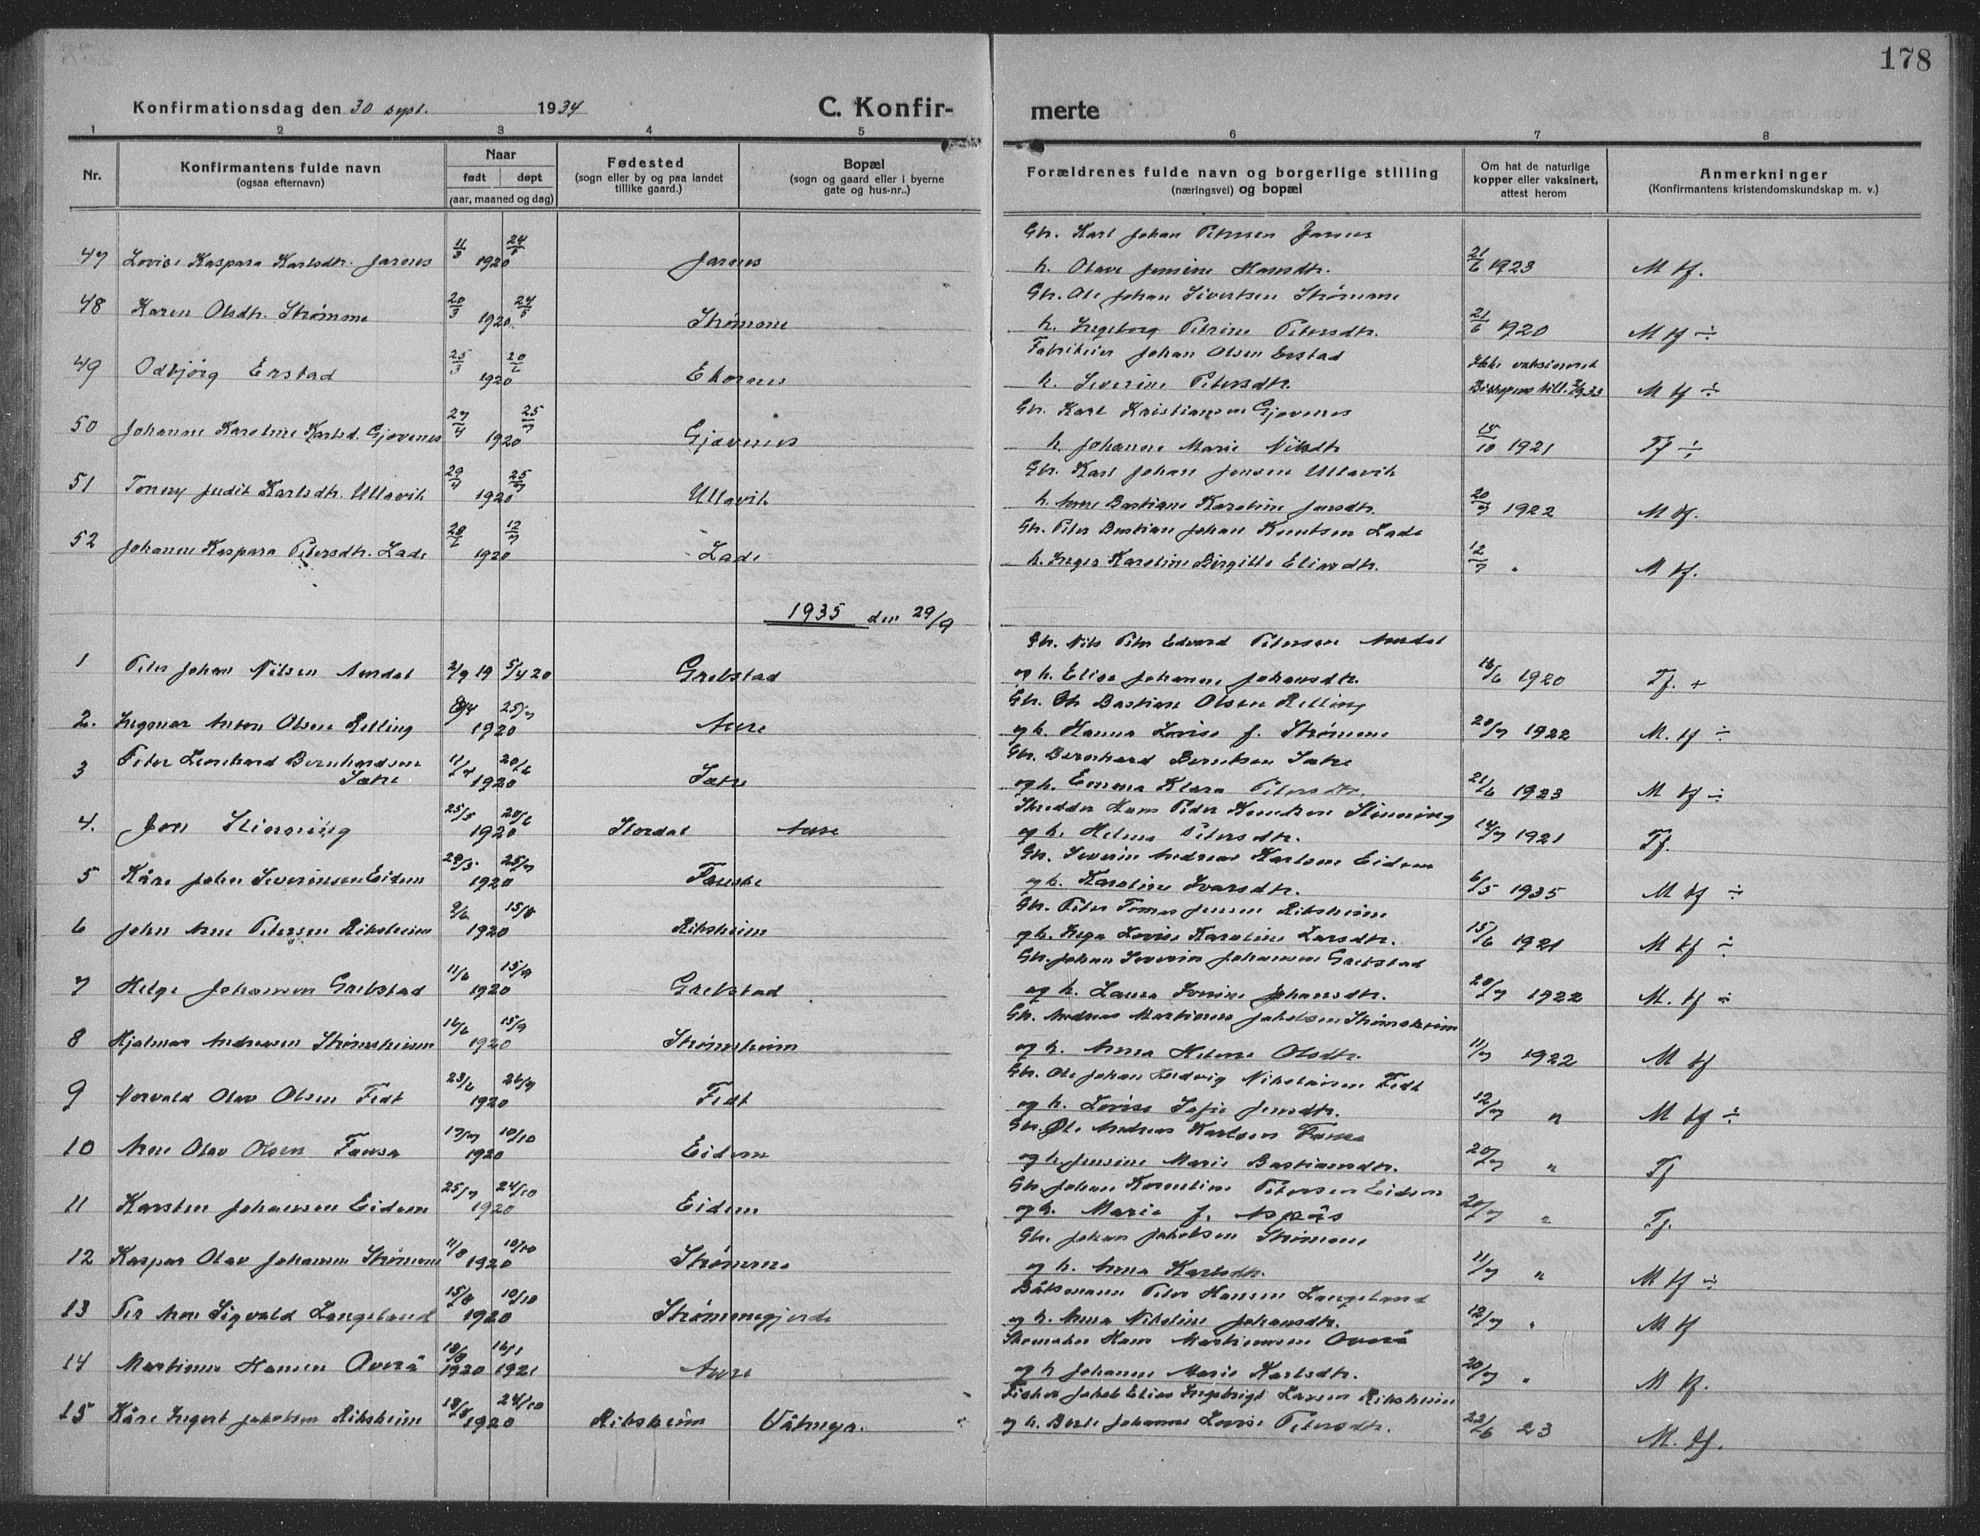 178
Konfirmationsdag den 30 sept. 1934 C. Konfir- merte
1 2 3 4 5 6 7 8
Nr. Konfirmantens fulde navn (ogsaa efternavn) Naar født døpt (aar, maaned og dag) Fødested (sogn eller by og paa landet tillike gaard.) Bopæl (sogn og gaard eller i byerne gate og hus-nr..) Forældrenes fulde navn og borgerlige stilling (næringsvei) og bopæl Om hat de naturlige kopper eller vaksinert, attest herom Anmerkninger (Konfirmantens kristendomskundskap m. v.)
Gbr. Karl Johan Petersen Jarnes
47 Lovise Kaspara Karlsdtr. Jarnes 11/3 1920 24/5 Jarnes h. Olave Jensine Hansdtr. 21/6 1923 M tf.
Gbr. Ole Johan Sivertsen Strømme
48 Karen Olsdtr. Strømme 20/3 1920 24/5 Strømme h. Ingeborg Petrine Petersdtr. 21/6 1920 M tf ÷
Fabrikeier Johan Olsen Erstad
49 Odbjørg Erstad 25/3 1920 20/6 Ekornes h. Severine Petersdtr. Ikke vaksineret Bispens till. 2/9 33 M tf ÷
Gbr. Karl Kristiansen Gjævenes
50 Johanne Karoline Karlsd. Gjævenes 27/4 1920 25/7 Gjævenes h. Johanne Marie Nilsdtr. 15/10 1921 Tf ÷
Gbr. Karl Johan Jensen Ullavik
51 Tonny Judit Karlsdtr. Ullavik 29/4 1920 25/7 Ullavik h. Anne Bastiane Karoline Jansdtr. 20/7 1922 M tf.
Gbr. Peter Bastian Johan Knutsen Lade
52 Johanne Kaspara Petersdtr. Lade 28/6 1920 12/9 Lade h. Inger Karoline Birgitte Eliasdtr. 12/7 " M tf.
1935 den 29/9
Gbr. Nils Peter Edvard Petersen Amdal
1 Peter Johan Nilsen Amdal 2/9 19 5/4 20 Grebstad og h. Elise Johanne Johansdtr. 16/6 1920 Tf. +
Gbr. Ole Bastian Olsen Relling
2. Ingvar Anton Olsen Relling 8/4 1920 25/7 Aure og h. Hanna Lovise f. Strømme 20/7 1922 M. tf ÷
Gbr. Bernhard Berntsen Sætre
3 Peter Leonhard Bernhardsen Sætre 11/4 1920 20/6 Sætre og h. Emma Klara Petersdtr. 21/6 1923 M tf ÷
Skredder Hans Peder Knudsen Stenering
4. Jon 25/5 1920 20/6 Stordal Aure og h. Helene Petersdtr. 14/7 1921 Tf.
Gbr. Severin Andreas Karlsen Eidem
5 Kåre John Severinsen Eidem 29/5 1920 25/7 Fauske og h. Karoline Ivarsdtr. 6/5 1935 M tf ÷
Gbr. Peter Tomas Jensen Riksheim
6 John Arne Petersen Riksheim 9/6 1920 15/8 Riksheim og h. Inga Lovise Karoline Larsdtr. 15/6 1921 M tf ÷
Gbr. Johan Severin Johansen Grebstad
7 Helge Johansen Grebstad 11/6 1920 15/9 Grebstad og h. Laura Lovise Johansdtr. 20/7 1922 M. tf ÷
Gbr. Andreas Martinus Jakobsen Strømsheim
8 Hjalmar Andreasen Strømsheim 16/6 1920 15/9 Strømsheim og h. Anna Helene Olsdtr. 11/7 1922 M tf
Gbr. Ole Johan Ludvig Nikolaisen Fedt
9 Norvald Olav Olsen Fedt 23/6 1920 26/9 Fedt og h. Lovise Sofie Jensdtr. 12/7 " M tf ÷
Gbr. Ole Andreas Karlsen
10 Arne Olav Olsen 17/7 1920 10/10 Eidem og h. Jensine Marie Bastiansdtr. 20/7 " Tf
Gbr. Johan Kornelius Petersen Eidem
11 Karsten Johansen Eidem 25/7 1920 24/10 Eidem og h. Marie f. Aspås 20/7 " Tf.
Gbr. Johan Jakobsen Strømme
12 Kaspar Olav Johansen Strømme 11/8 1920 10/10 Strømme og h. Anna Karlsdtr. 11/7 " M tf ÷
Båtsmann Peter Hansen Langeland
13 Per Arne Sigvald Langeland 15/8 1920 10/10 Strømmegjerde og h. Anna Nikoline Johansdtr. 12/7 " M tf
Skomaker Hans Martinusen Overå
14 Martinus Hansen Overå 18/8 1920 16/1 1921 Aure og h Johanne Marie Karlsdtr. 20/7 " M tf.
Fisker Jakob Elias Ingebrigt Larsen Riksheim
15 Kåre Ingert Jakobsen Riksheim 18/8 1920 24/10 Riksheim og h. Berte Johanne Lovise Petersdtr. 22/6 23 M. tf.